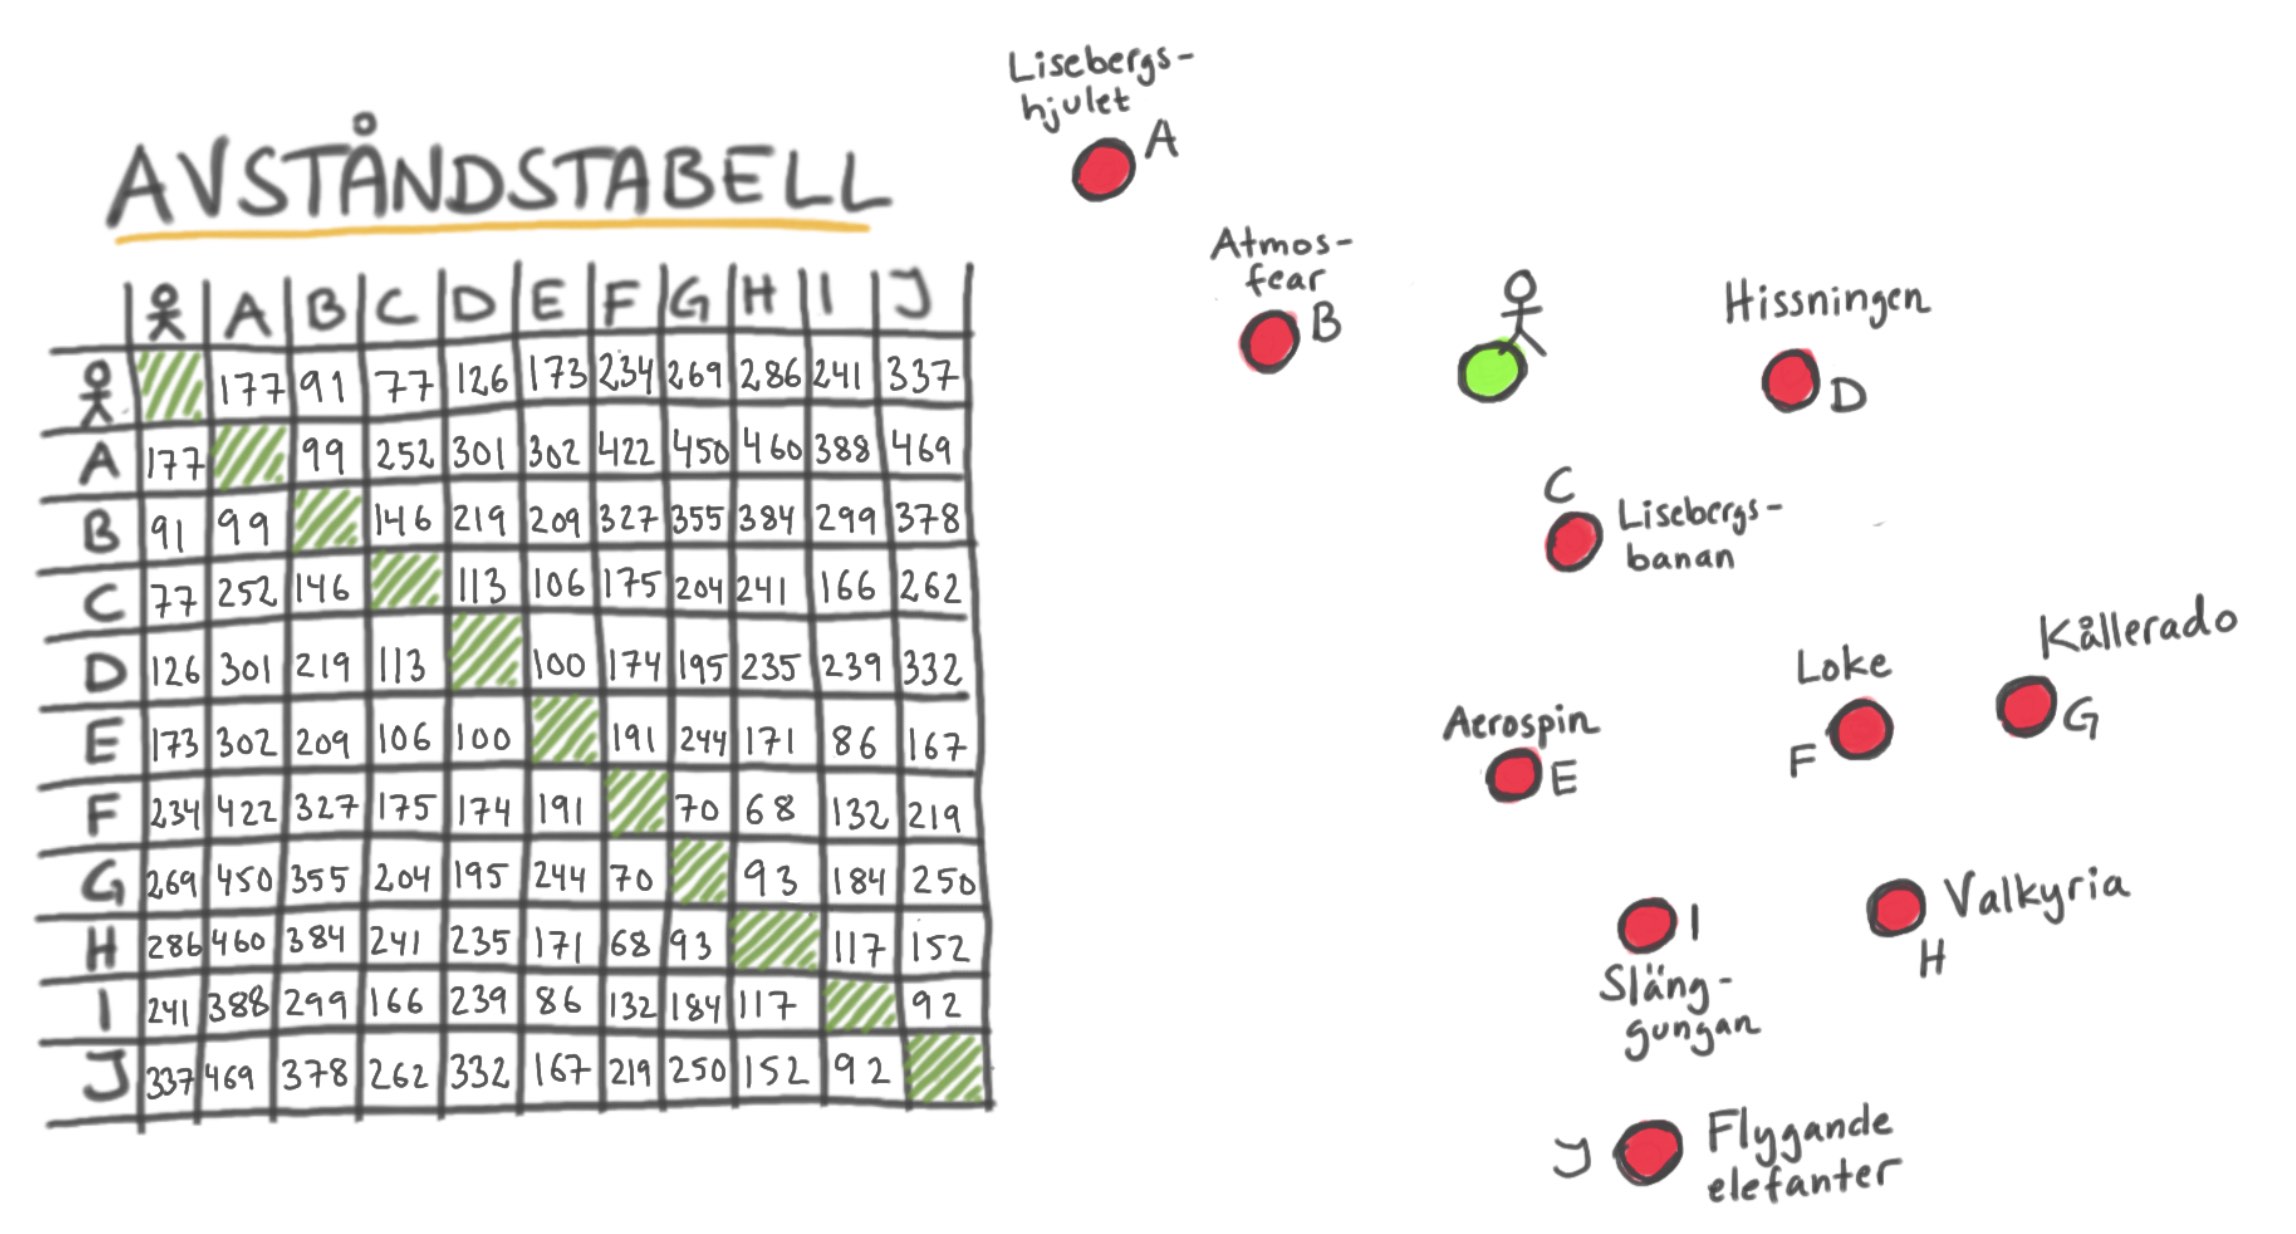 AVSTÅNDSTABELL
A B C D E F G H I J
177 91 77 126 173 234 269 286 241 337
A 177 99 252 301 302 422 450 460 388 469
B 91 99 146 219 209 327 355 384 299 378
C 77 252 146 113 106 175 204 241 166 262
D 126 301 219 113 100 174 195 235 239 332
E 173 302 209 106 100 191 244 171 86 167
F 234 422 327 175 174 191 70 68 132 219
G 269 450 355 204 195 244 70 93 184 250
H 286 460 384 241 235 171 68 93 117 152
I 241 388 299 166 239 86 132 184 117 92
J 337 469 378 262 332 167 219 250 152 92
Lisebergs-
hjulet
A
Atmos-
fear
B
Hissningen
D
C
Lisebergs-
banan
Kållerado
G
Loke
F
Aerospin
E
Valkyria
H
I
Släng-
gungan
J
Flygande
elefanter